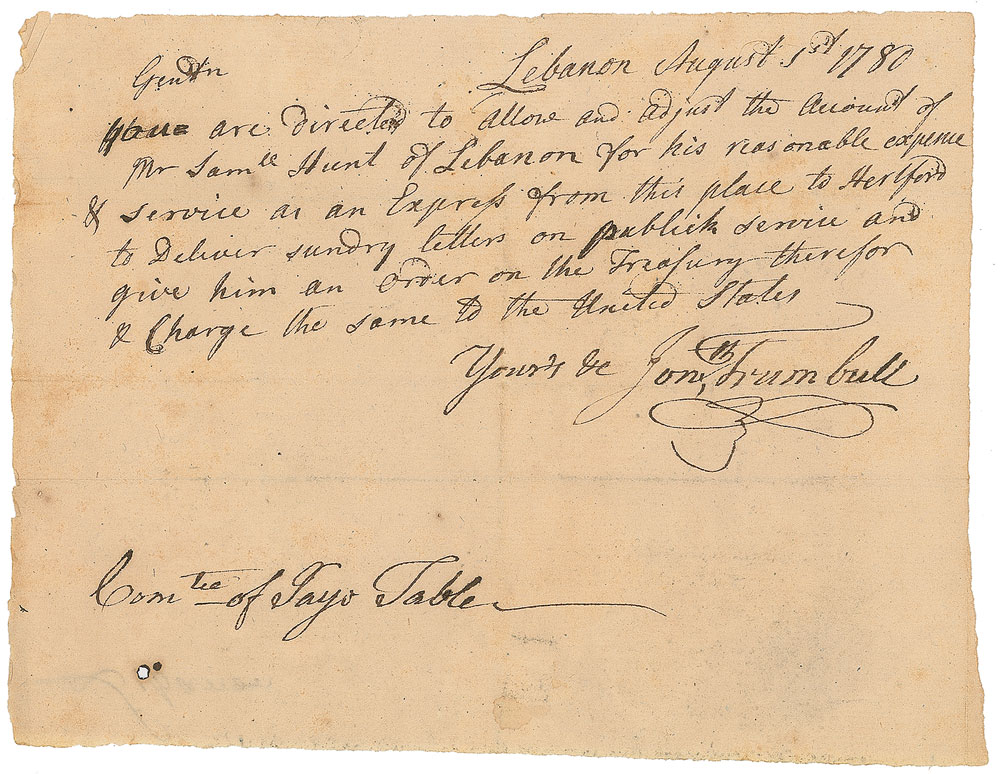 Lebanon August 1st 1780
Gentn
you are directed to allow and adjust the account of
Mr Samll Hunt of Lebanon for his reasonable expence
& service as an Express from this place to Hertford
to Deliver sundry letters on publick service and
give him an order on the Treasury therefor
& Charge the same to the United States
Your's &c Jonth Trumbull
Comtee of Pay Table